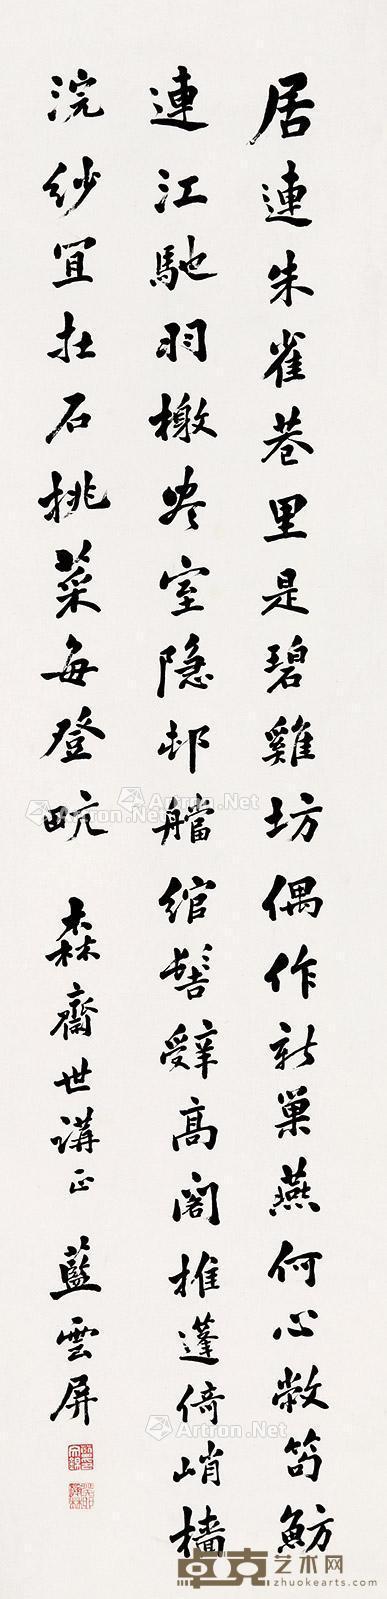 居連朱雀巷里是碧雞坊偶作新巢燕何心敝笱魴
連江馳羽檄盡室隱邨艡綰髻辭高閣推蓬倚峭檣
浣紗宜在石挑菜每登畝 森齋世講正 藍雲屏
Artron.Net
Artron.Net
Artron.Net
Artron.Net
卓克艺术网
zhuokearts.com